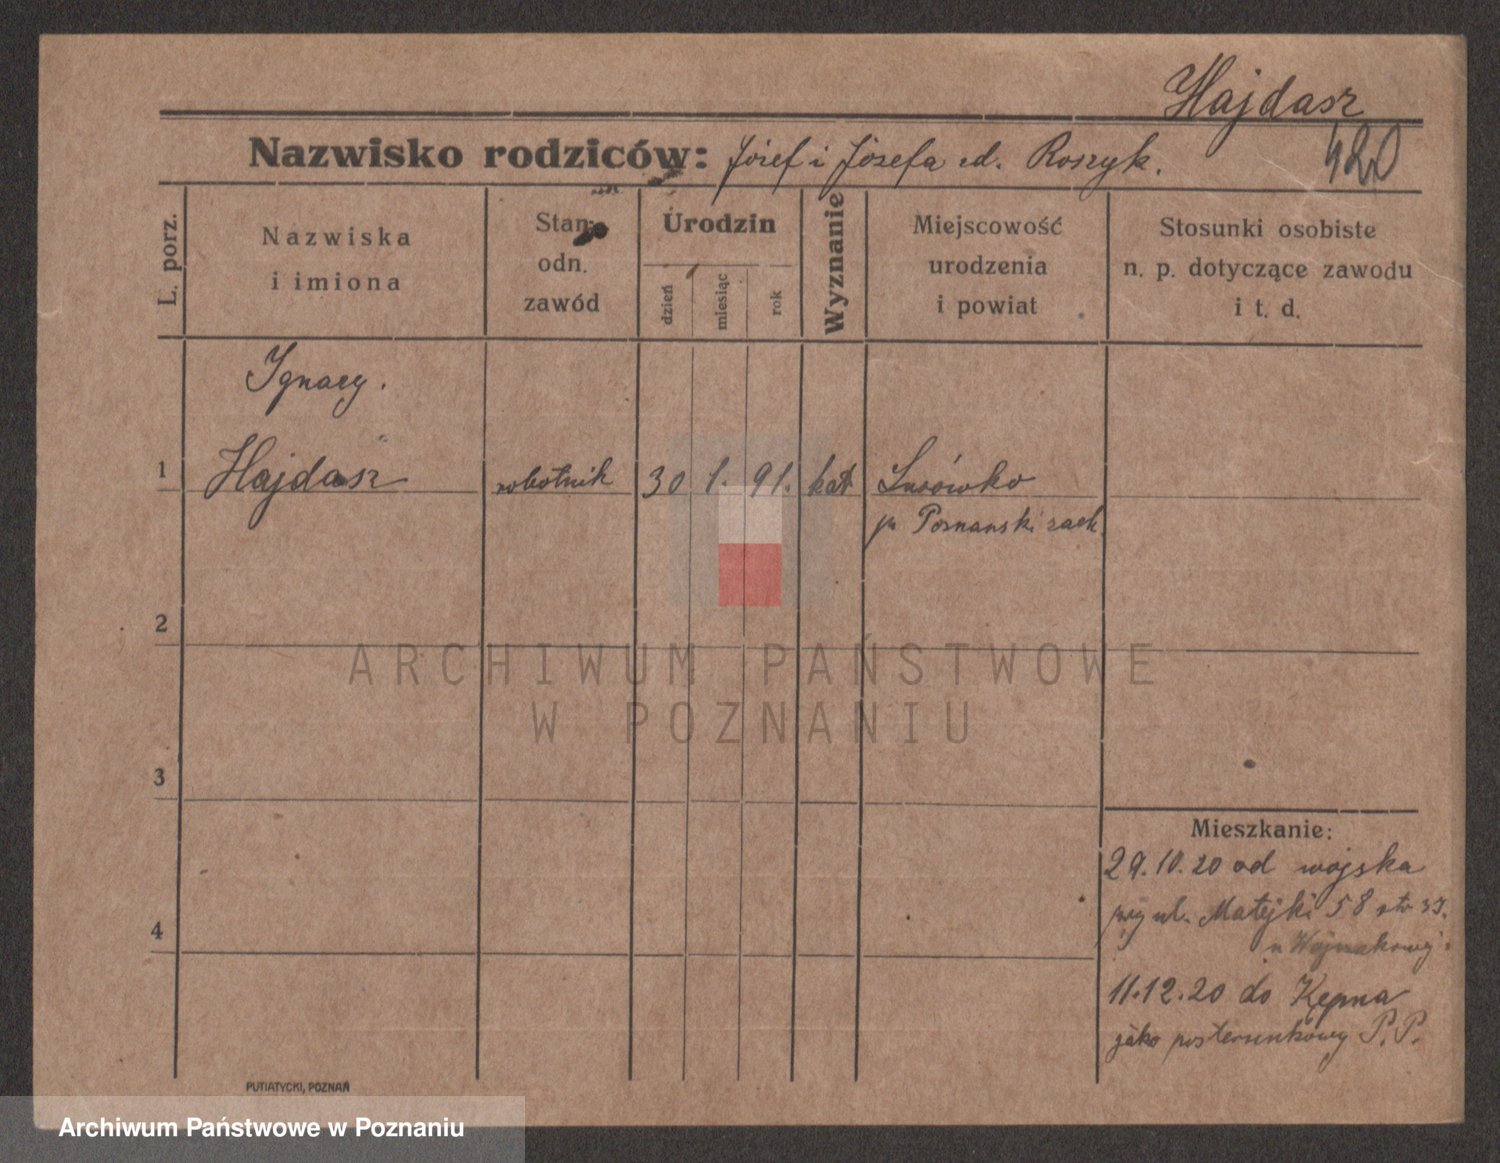 Hajdasz
420
Nazwisko rodziców: Józef i Józefa ud. Roszyk.
L. porz.
Nazwiska
i imiona
Stan
odn.
zawód
Urodzin
dzień
miesiąc
rok
Wyznanie
Miejscowość
urodzenia
i powiat
Stosunki osobiste
n. p. dotyczące zawodu
i t. d.
Ignacy.
1 Hajdasz robotnik 30 1. 91. kat Lusówko
Poznański zach.
2
ARCHIWUM PAŃSTWOWE
W POZNANIU
3
Mieszkanie:
29.10.20 od wojska
ul. Matejki 58
4
11.12.20 do Kępna
jako posterunkowy P. P.
PUTIATYCKI, POZNAŃ
Archiwum Państwowe w Poznaniu